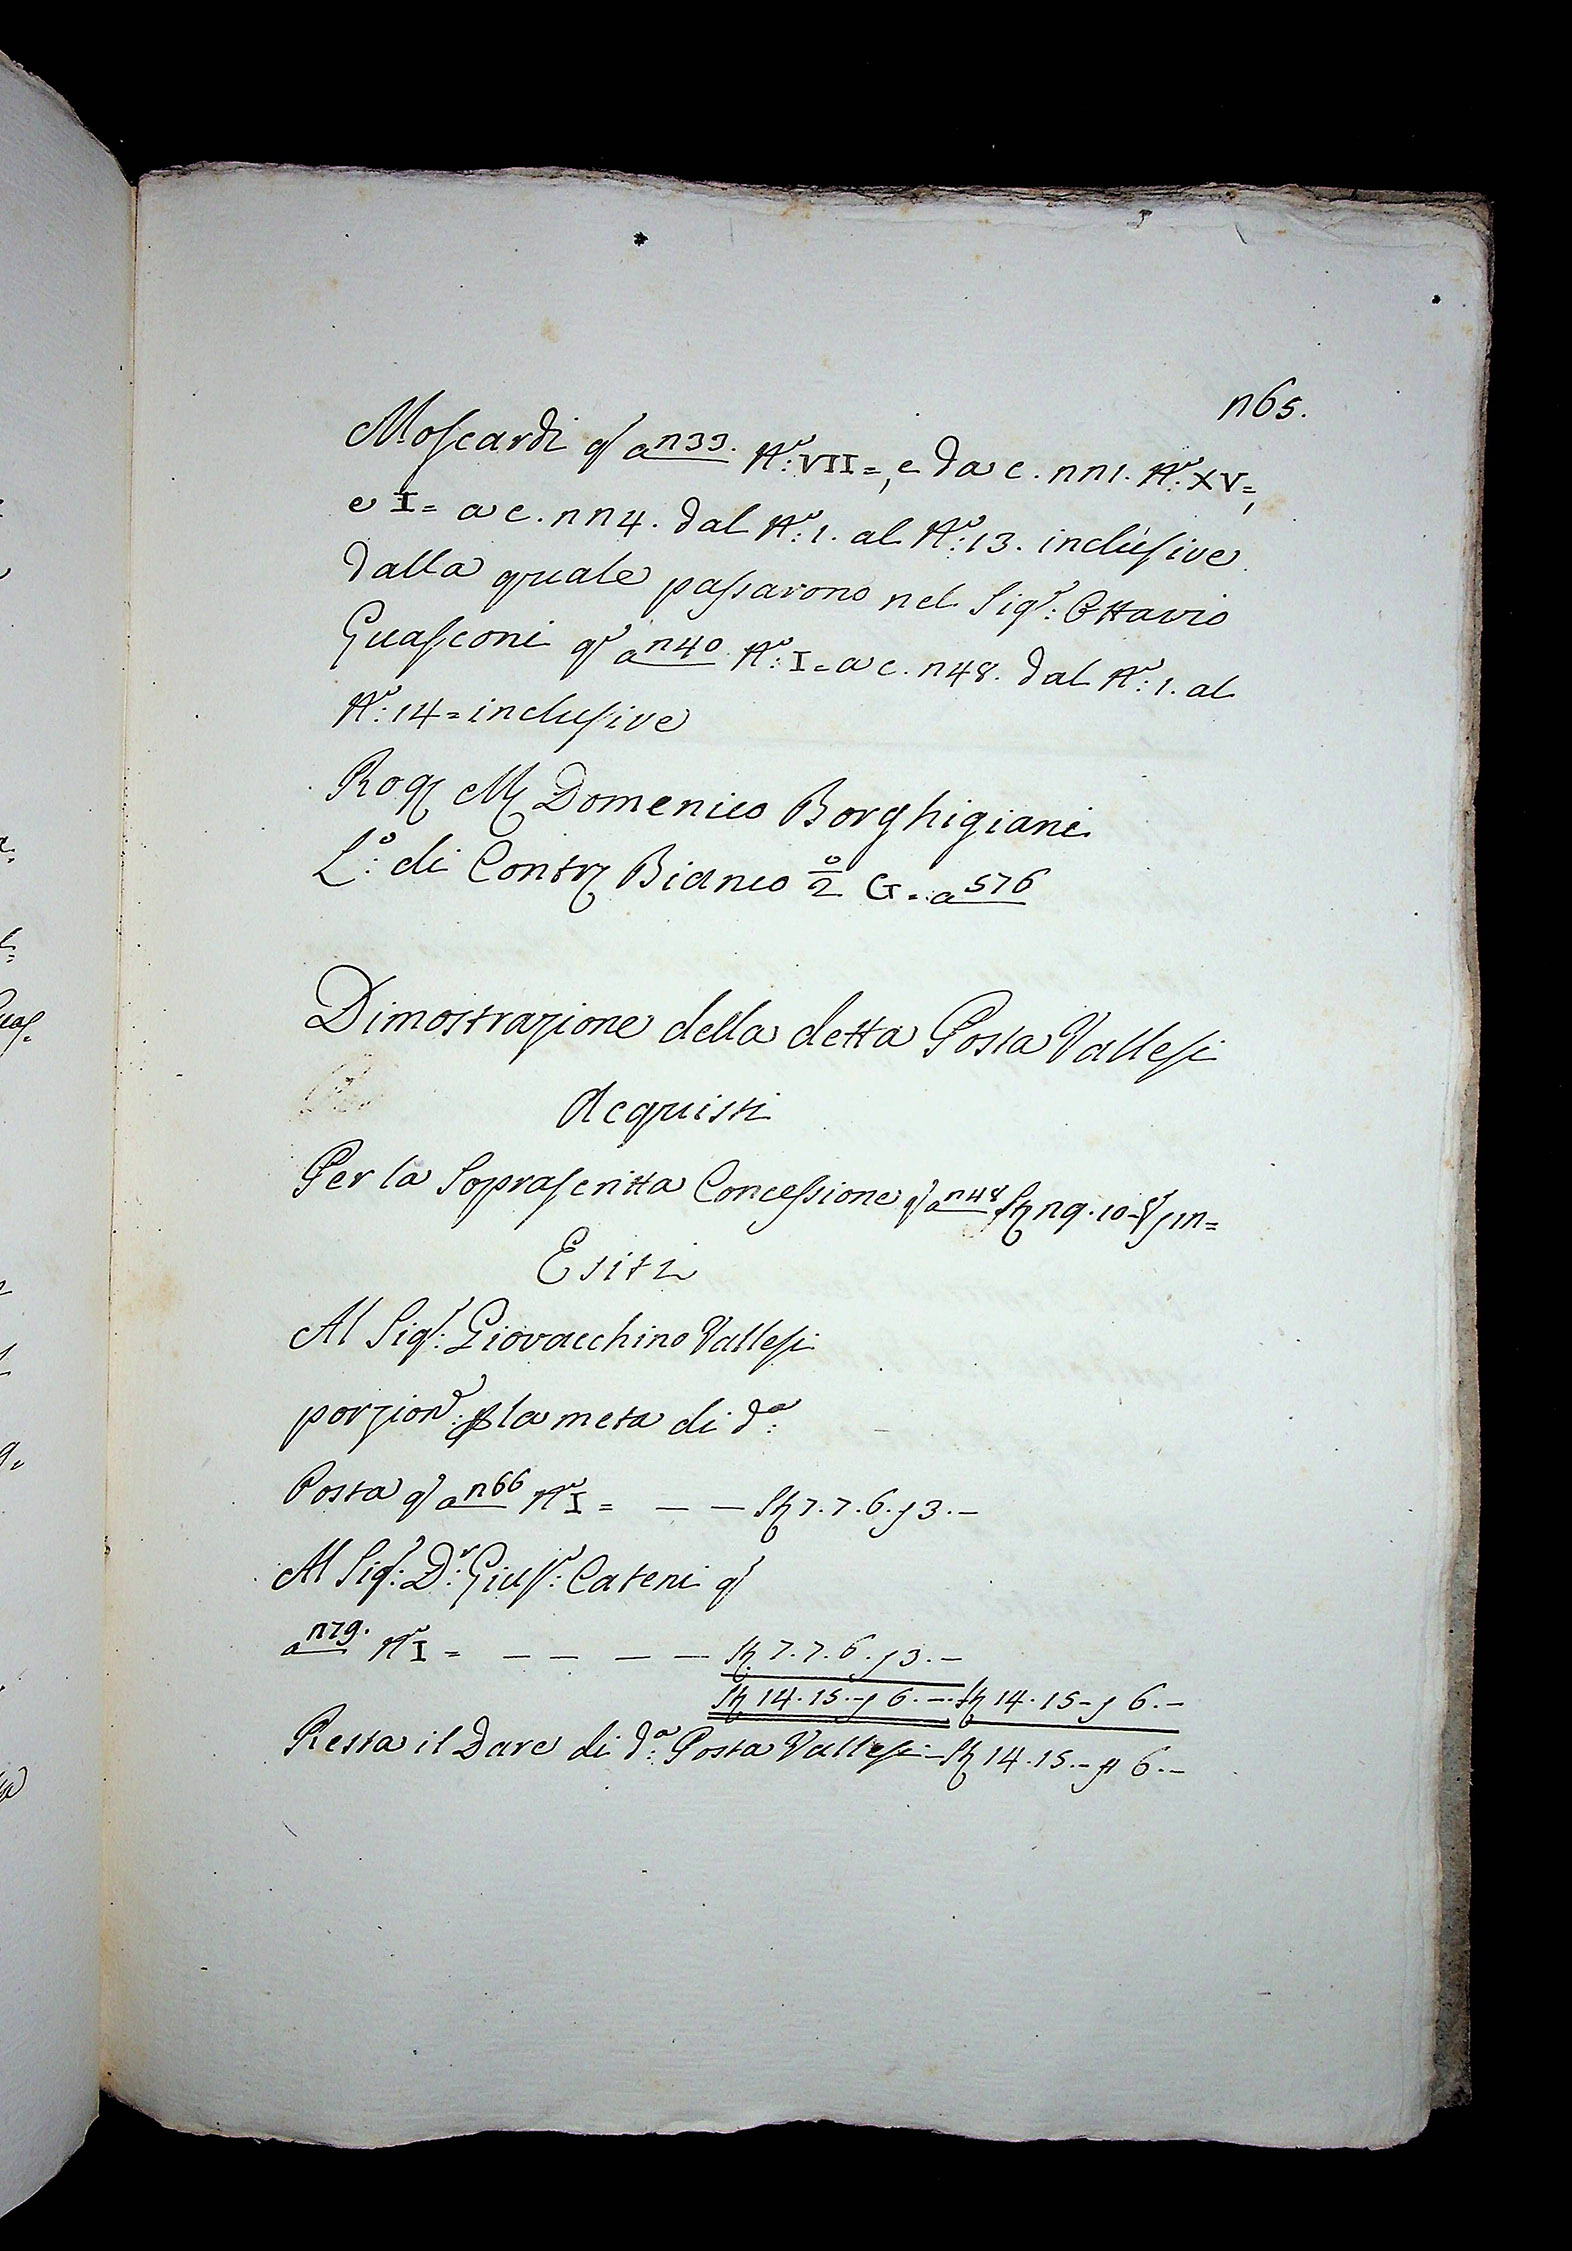 n65.
Moscardi q.l a n33. No: VII=, e da c. nn1. No: XV=,
e I= a c. nn4. dal No: 1. al No: 13. inclusive
dalla quale passarono nel Sig.r: Ottavio
Guasconi q.l a n40 No: I= a c. n48. dal No: 1. al
No: 14= inclusive
Rog. M. Domenico Borghigiani
L.o: di Contr. Bianco 2 G. a 576
Dimostrazione della detta Posta Vallesi
Acquisti
Per la Soprascritta Concessione a n48 n9.10
Esiti
Al Sig.r: Giovacchino Vallesi
porzion.e: p la meta di d.a:
Posta a n66 No I= — — St 7.7.6.f 3.—
Al Sig.r: D.r: Gius.e: Cateni
a n79. No I= — — — — St 7.7.6.f 3.—
St 14.15.-f 6.—. St 14.15-f 6.—
Resta il Dare di d.a: Posta Vallesi — St 14.15.-f 6.—